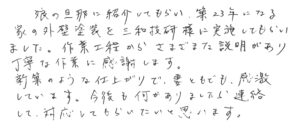 娘の旦那に紹介してもらい、第23年になる
家の外壁塗装を三和技研様に実施してもらい
ました。作業工程からさまざまな説明があり
丁寧な作業に感謝します。
新築のような仕上がりで、妻ともども、感激
しています。今後も何がありましたら連絡
して、対応してもらいたいと思います。